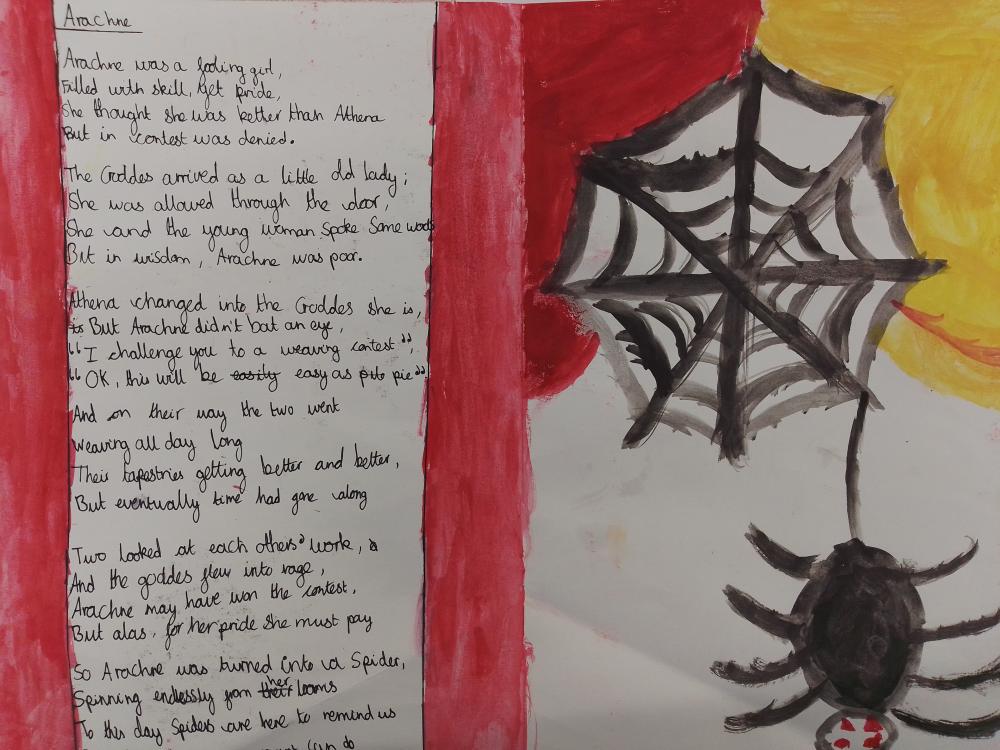 Arachne
Arachne was a fooling girl,
Filled with skill, yet pride,
She thought she was better than Athena
But in contest was denied.
The Goddes arrived as a little old lady;
She was allowed through the door,
She and the young woman spoke Some words
But in wisdom, Arachne was poor.
Athena changed into the Goddes she is,
But Arachne didn't bat an eye,
"I challenge you to a weaving contest",
"OK, this will be easily easy as pie"
And on their way the two went
weaving all day long
Their tapestries getting better and better,
But eventually time had gone along
Two looked at each others' work,
And the goddes flew into rage,
Arachne may have won the contest,
But alas, for her pride she must pay
So Arachne was turned into a Spider,
Spinning endlessly from their her looms
To this day Spiders are here to remind us
can do